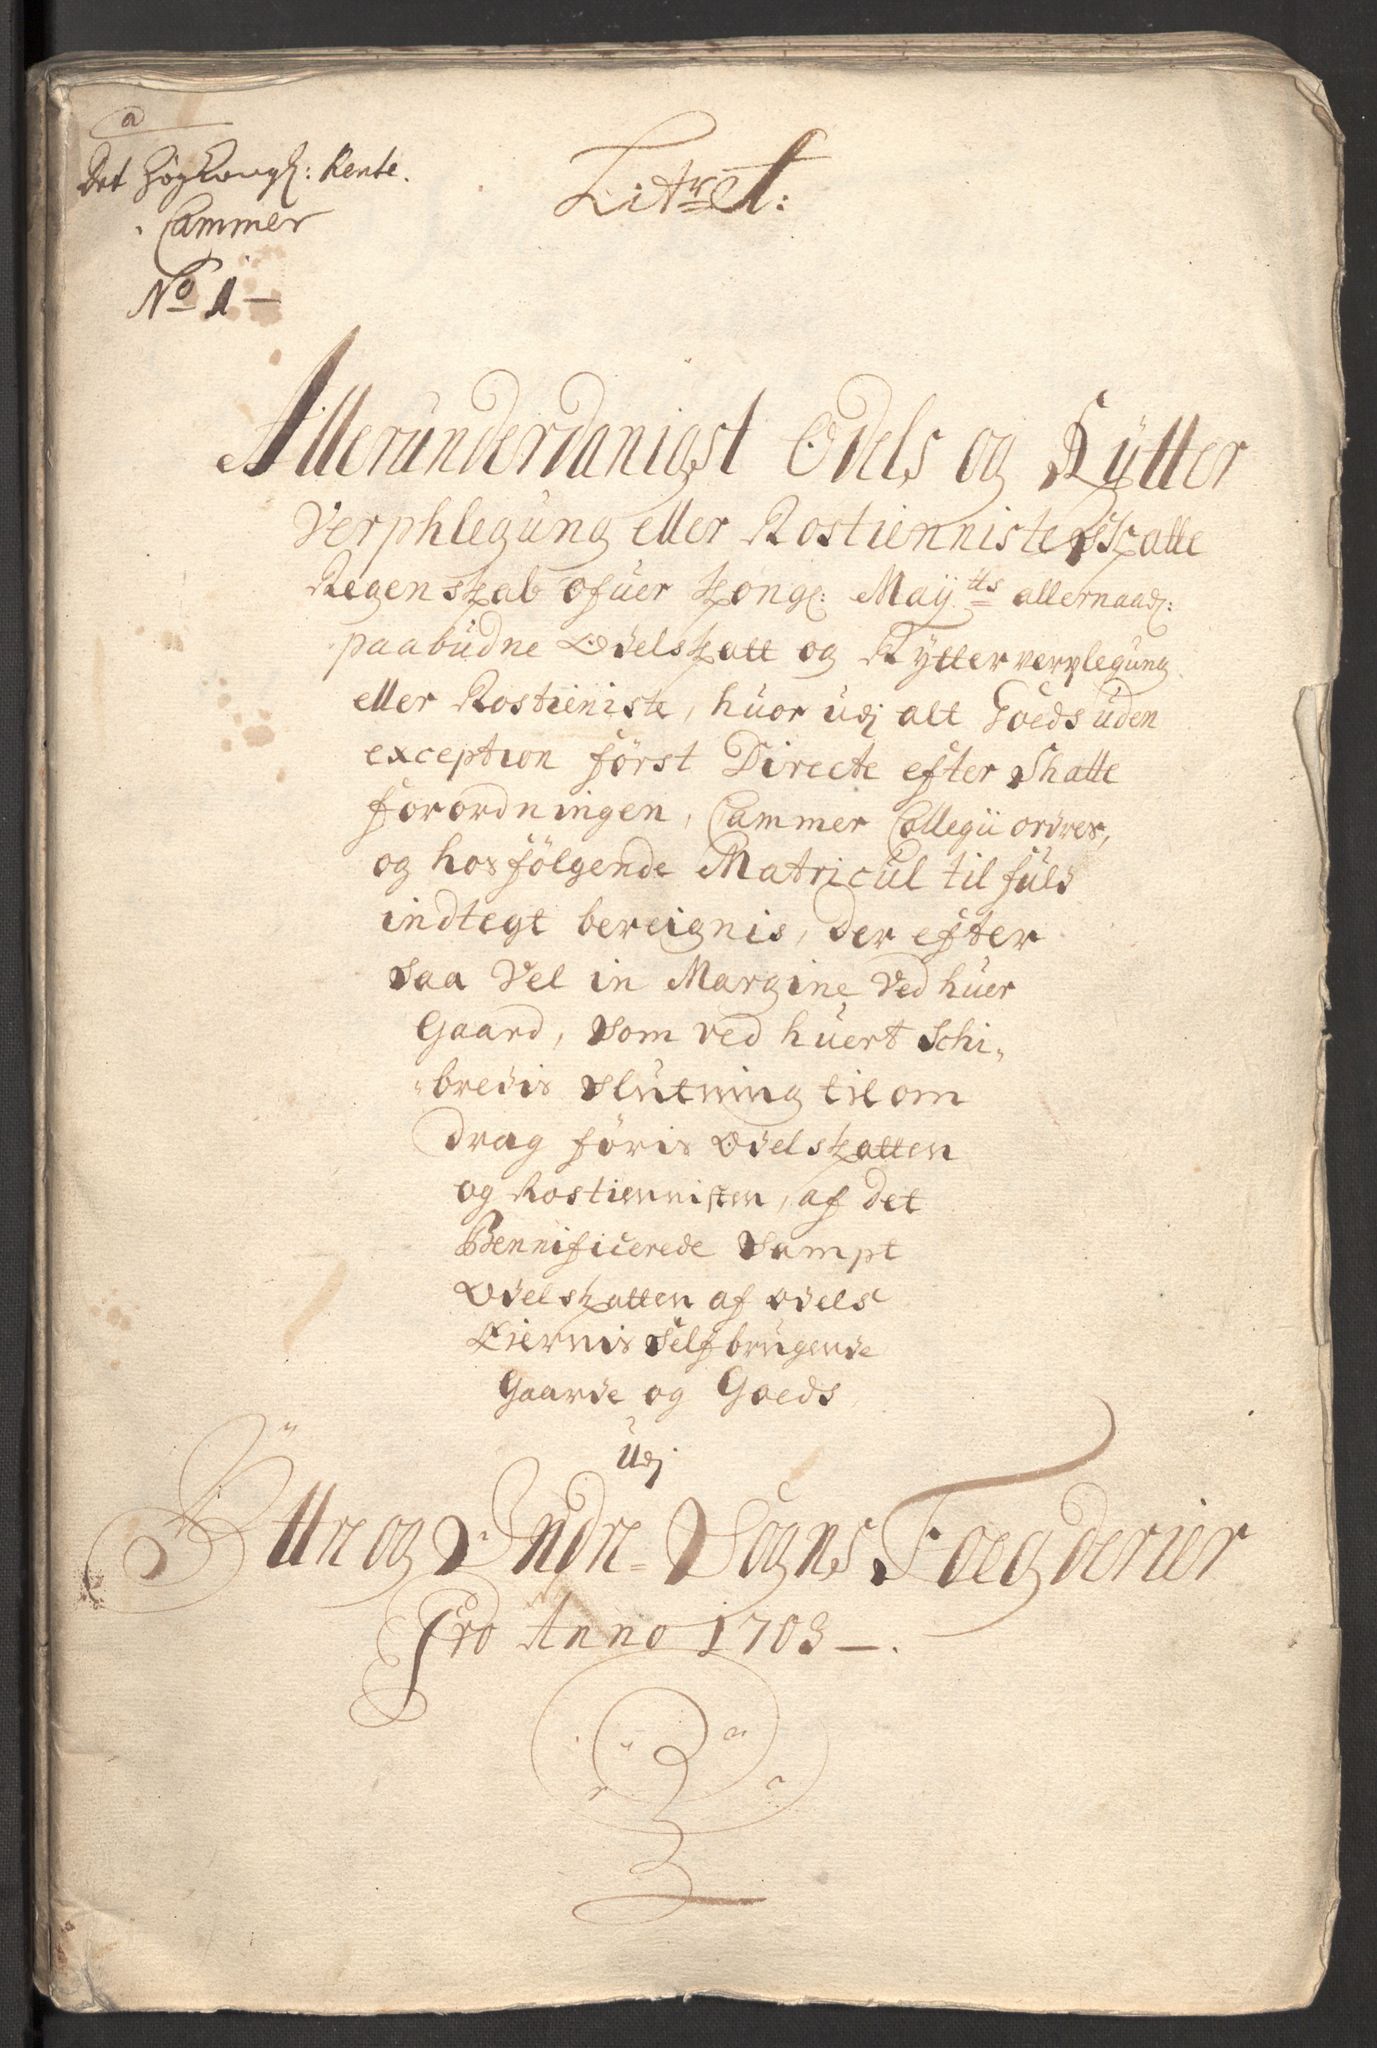 a
Det høyKongl: Rente.
Cammer
No 1 —
Litr: A:
Allerunderdanigst Odels og Rÿtter
Verphlegung eller Rostiennisteskatte
Regenskab ofuer Kongl: Maÿtts allernaad:
paabudne Odelskatt og Rÿtterverplegung
eller Rostieniste, huor udj alt Goeds uden
exception først Directe efter Skatte
forordningen, Cammer Collegii ordres,
og hosfölgende Matricul til fuld
indtegt bereignis, der efter
saa Vel in Margine Ved huer
Gaard, som ved huert Schi„
„bredis slutning til om
drag føris Odelskatten
og Rostiennisten, af det
Bennificerede sampt
Odelskatten af odels
Eiernis self brugende
Gaarde og Goeds
Udj
Ÿttre og Indre = Sogns Foegderier
Pro Anno 1703 —.